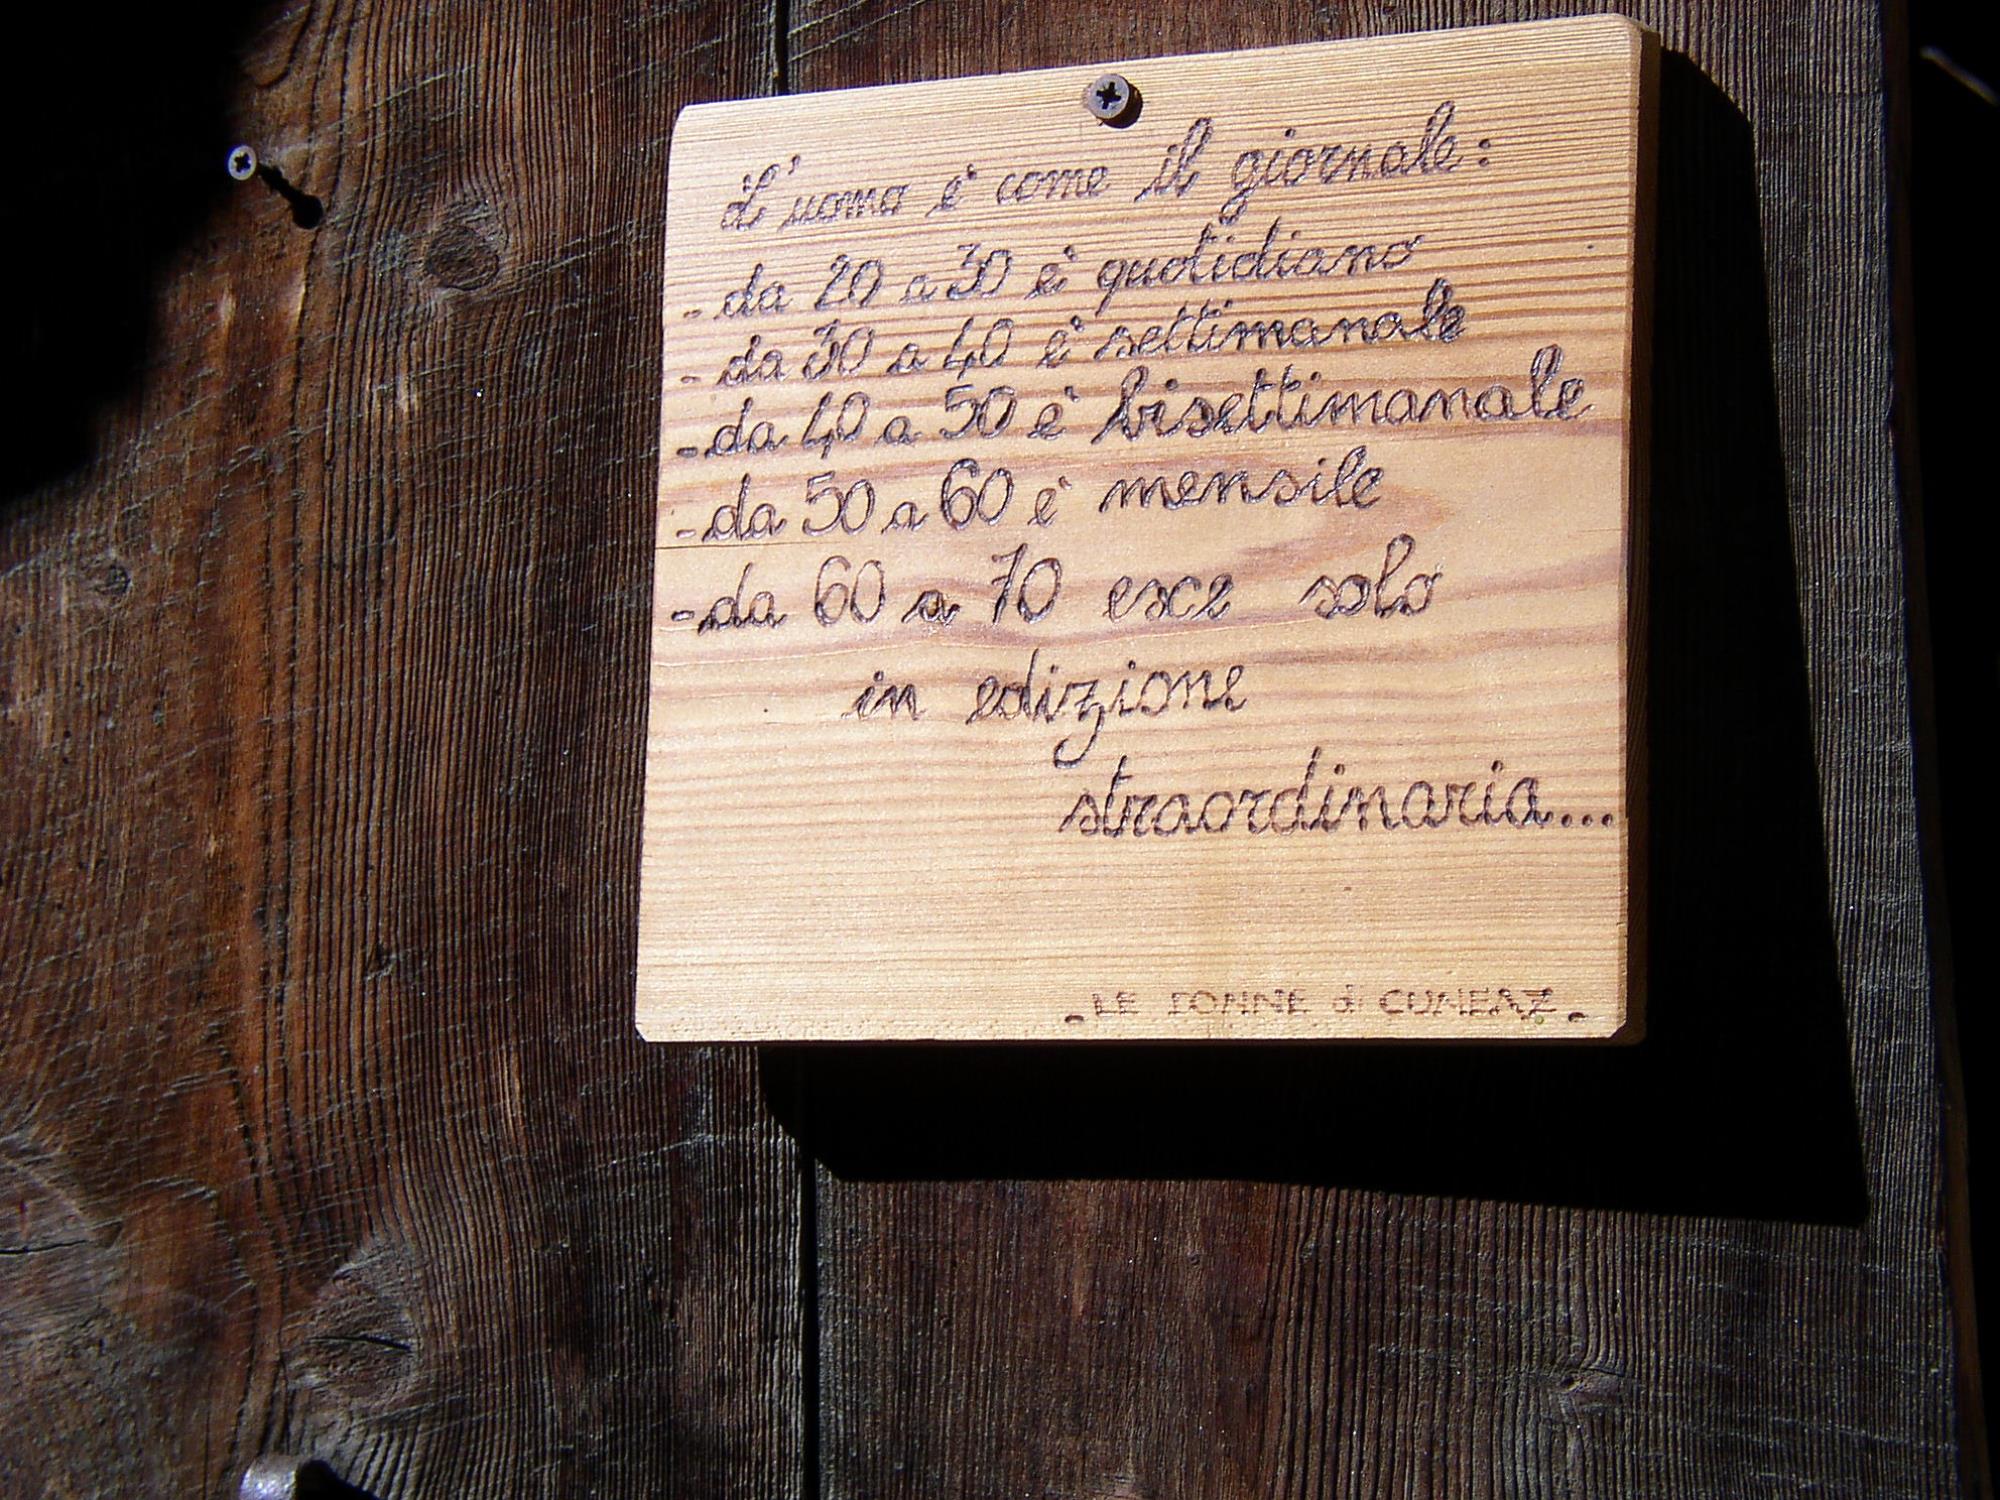 L'uomo è come il giornale:
- da 20 a 30 è quotidiano
- da 30 a 40 è settimanale
- da 40 a 50 è bisettimanale
- da 50 a 60 è mensile
- da 60 a 70 esce solo
in edizione
straordinaria...
- LE DONNE di CUNEAZ -